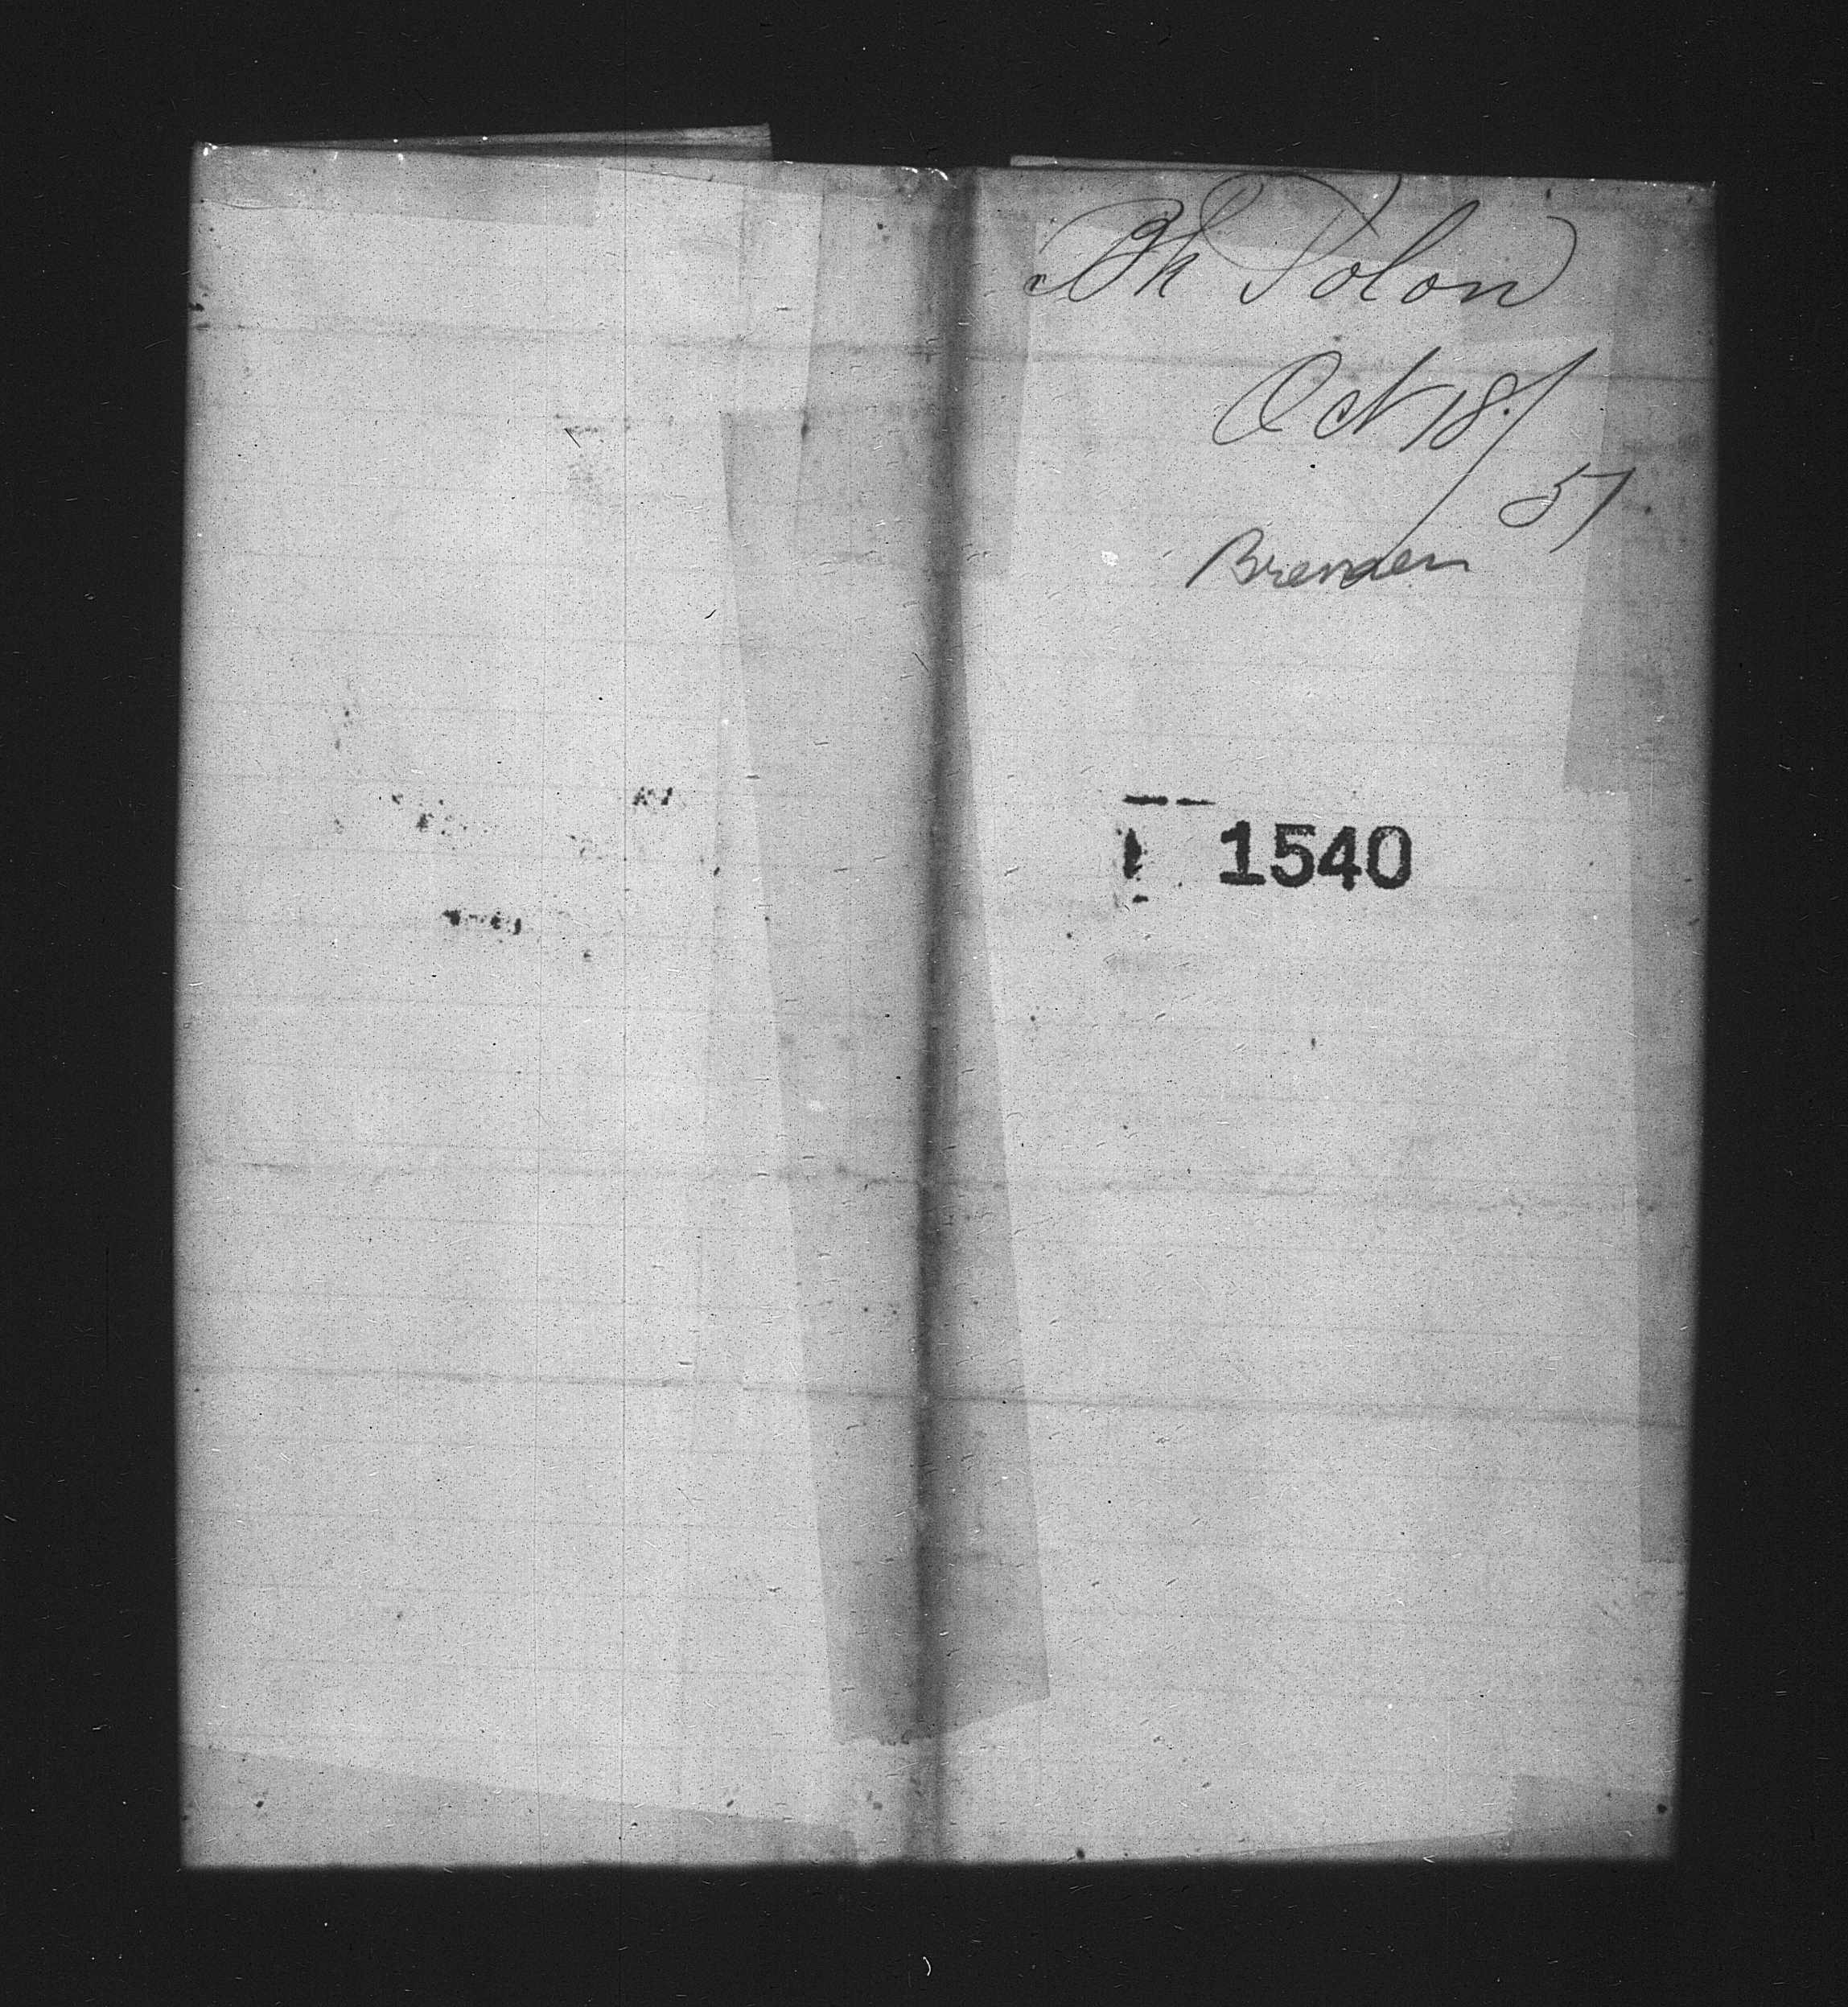 Bk Solon
Oct 18/
51
Bremen
1540